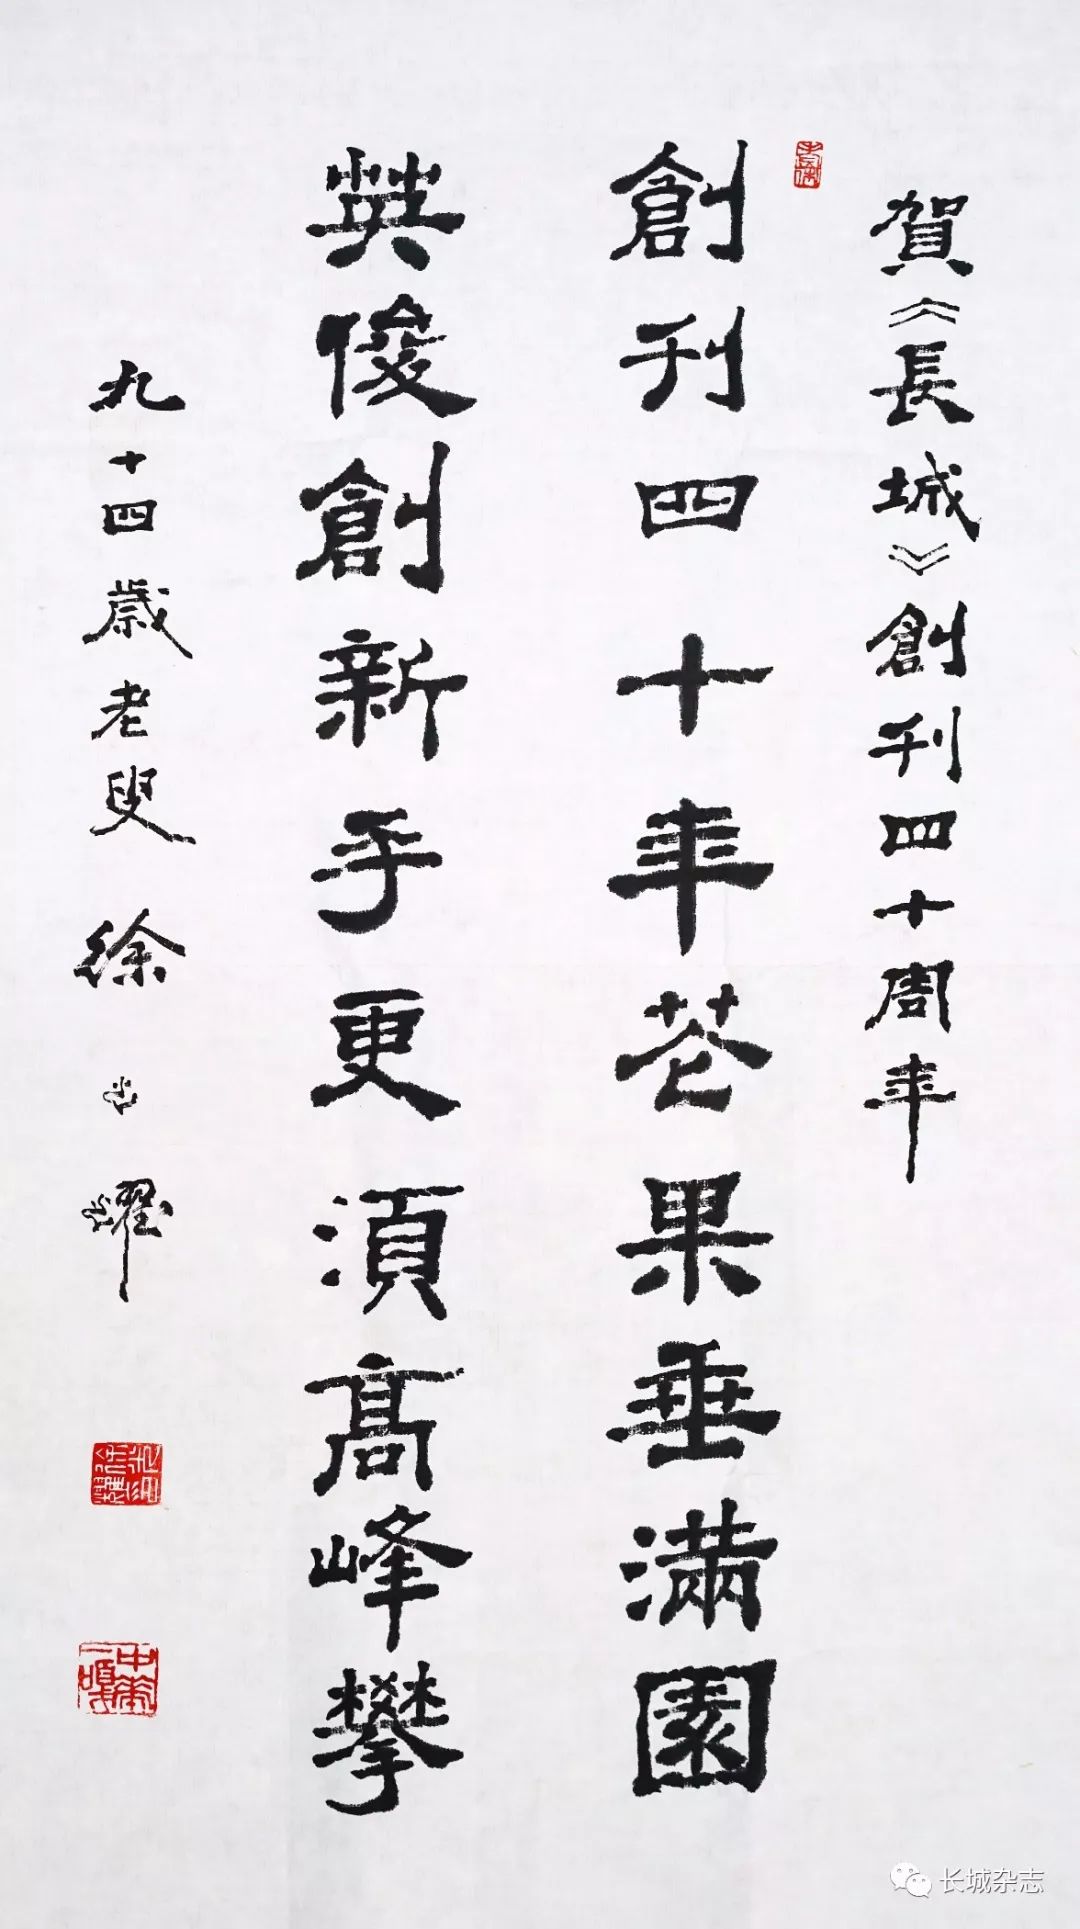 賀《長城》創刊四十周年
創刊四十年花果垂滿園
英俊創新手更須高峰攀
九十四歲老叟徐光耀
长城杂志